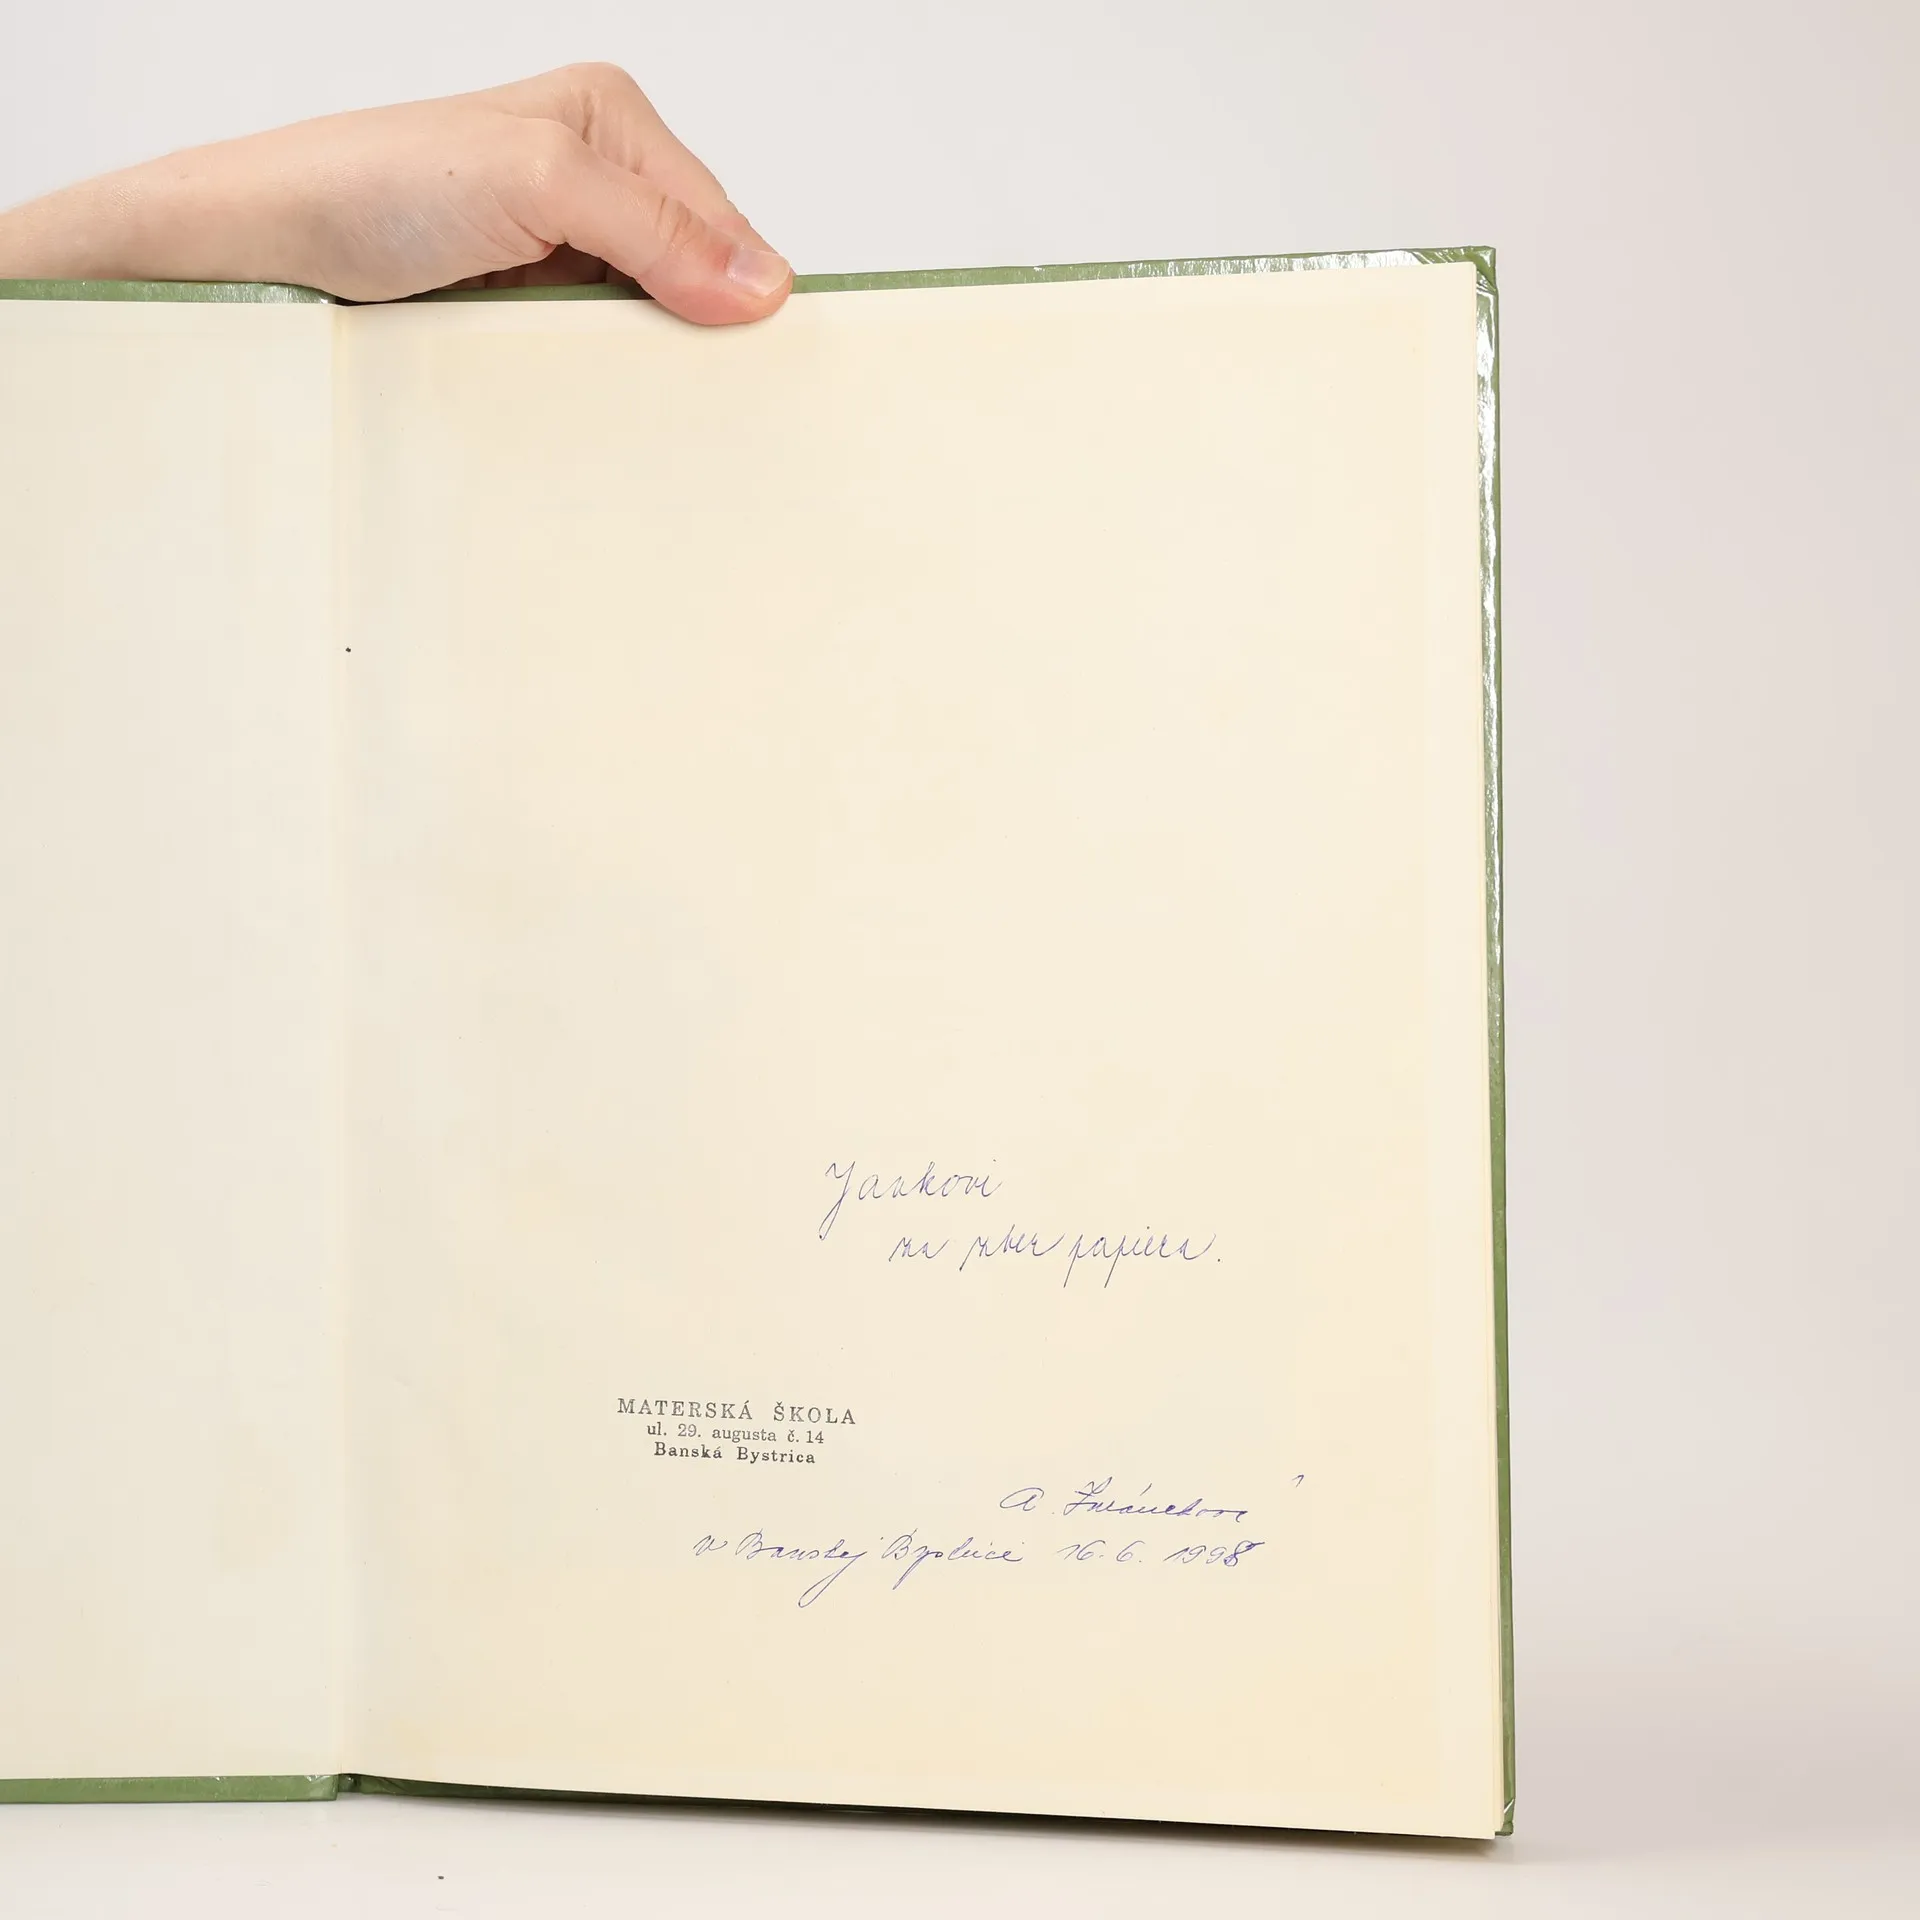 Jankovi
za zber papiera.
MATERSKÁ ŠKOLA
ul. 29. augusta č. 14
Banská Bystrica
A.
v Banskej Bystrici 16. 6. 1998